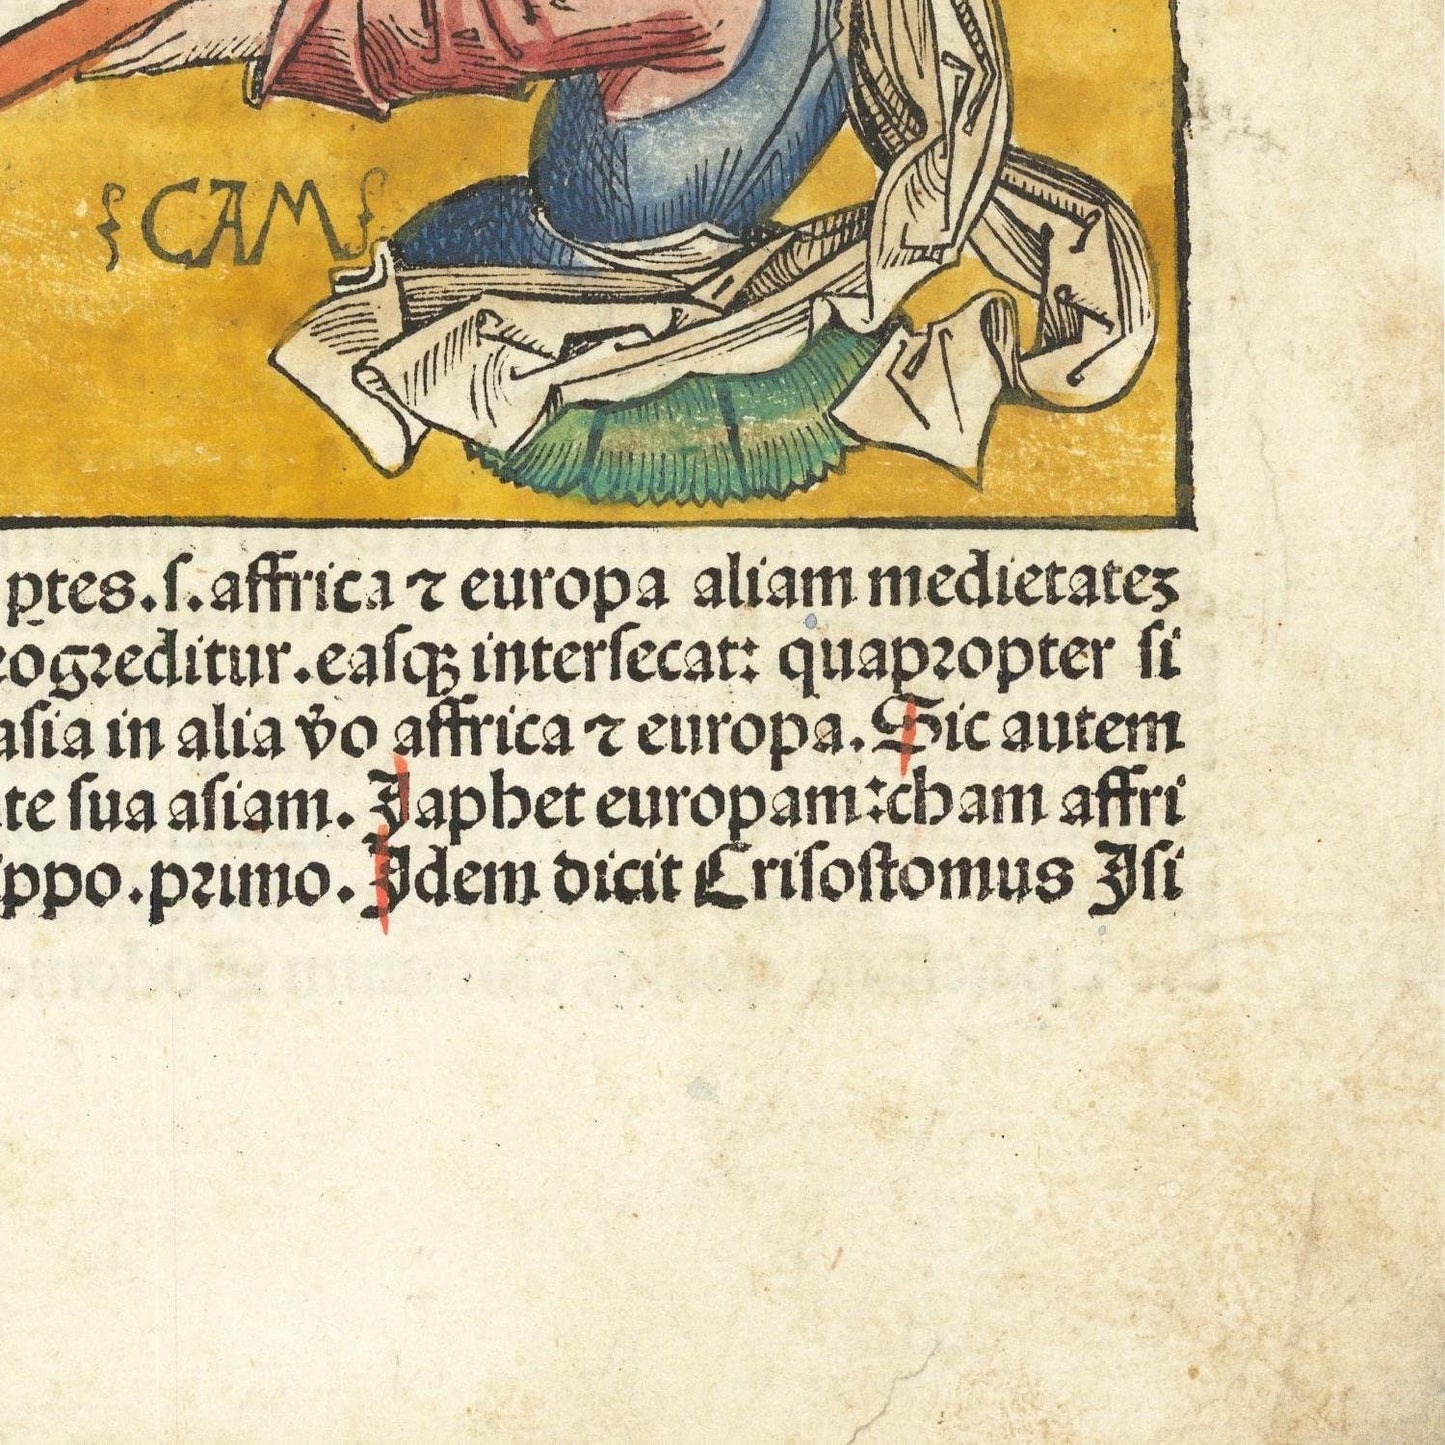 CAM
ꝑtes.ſ.affrica ⁊ europa aliam medietateʒ
ogreditur.eaſqʒ interſecat: quapropter ſi
aſia in alia v̄o affrica ⁊ europa. Sic autem
te ſua aſiam. Japhet europam:cham affri
ppo.primo. Idem dicit Criſoſtomus Iſi